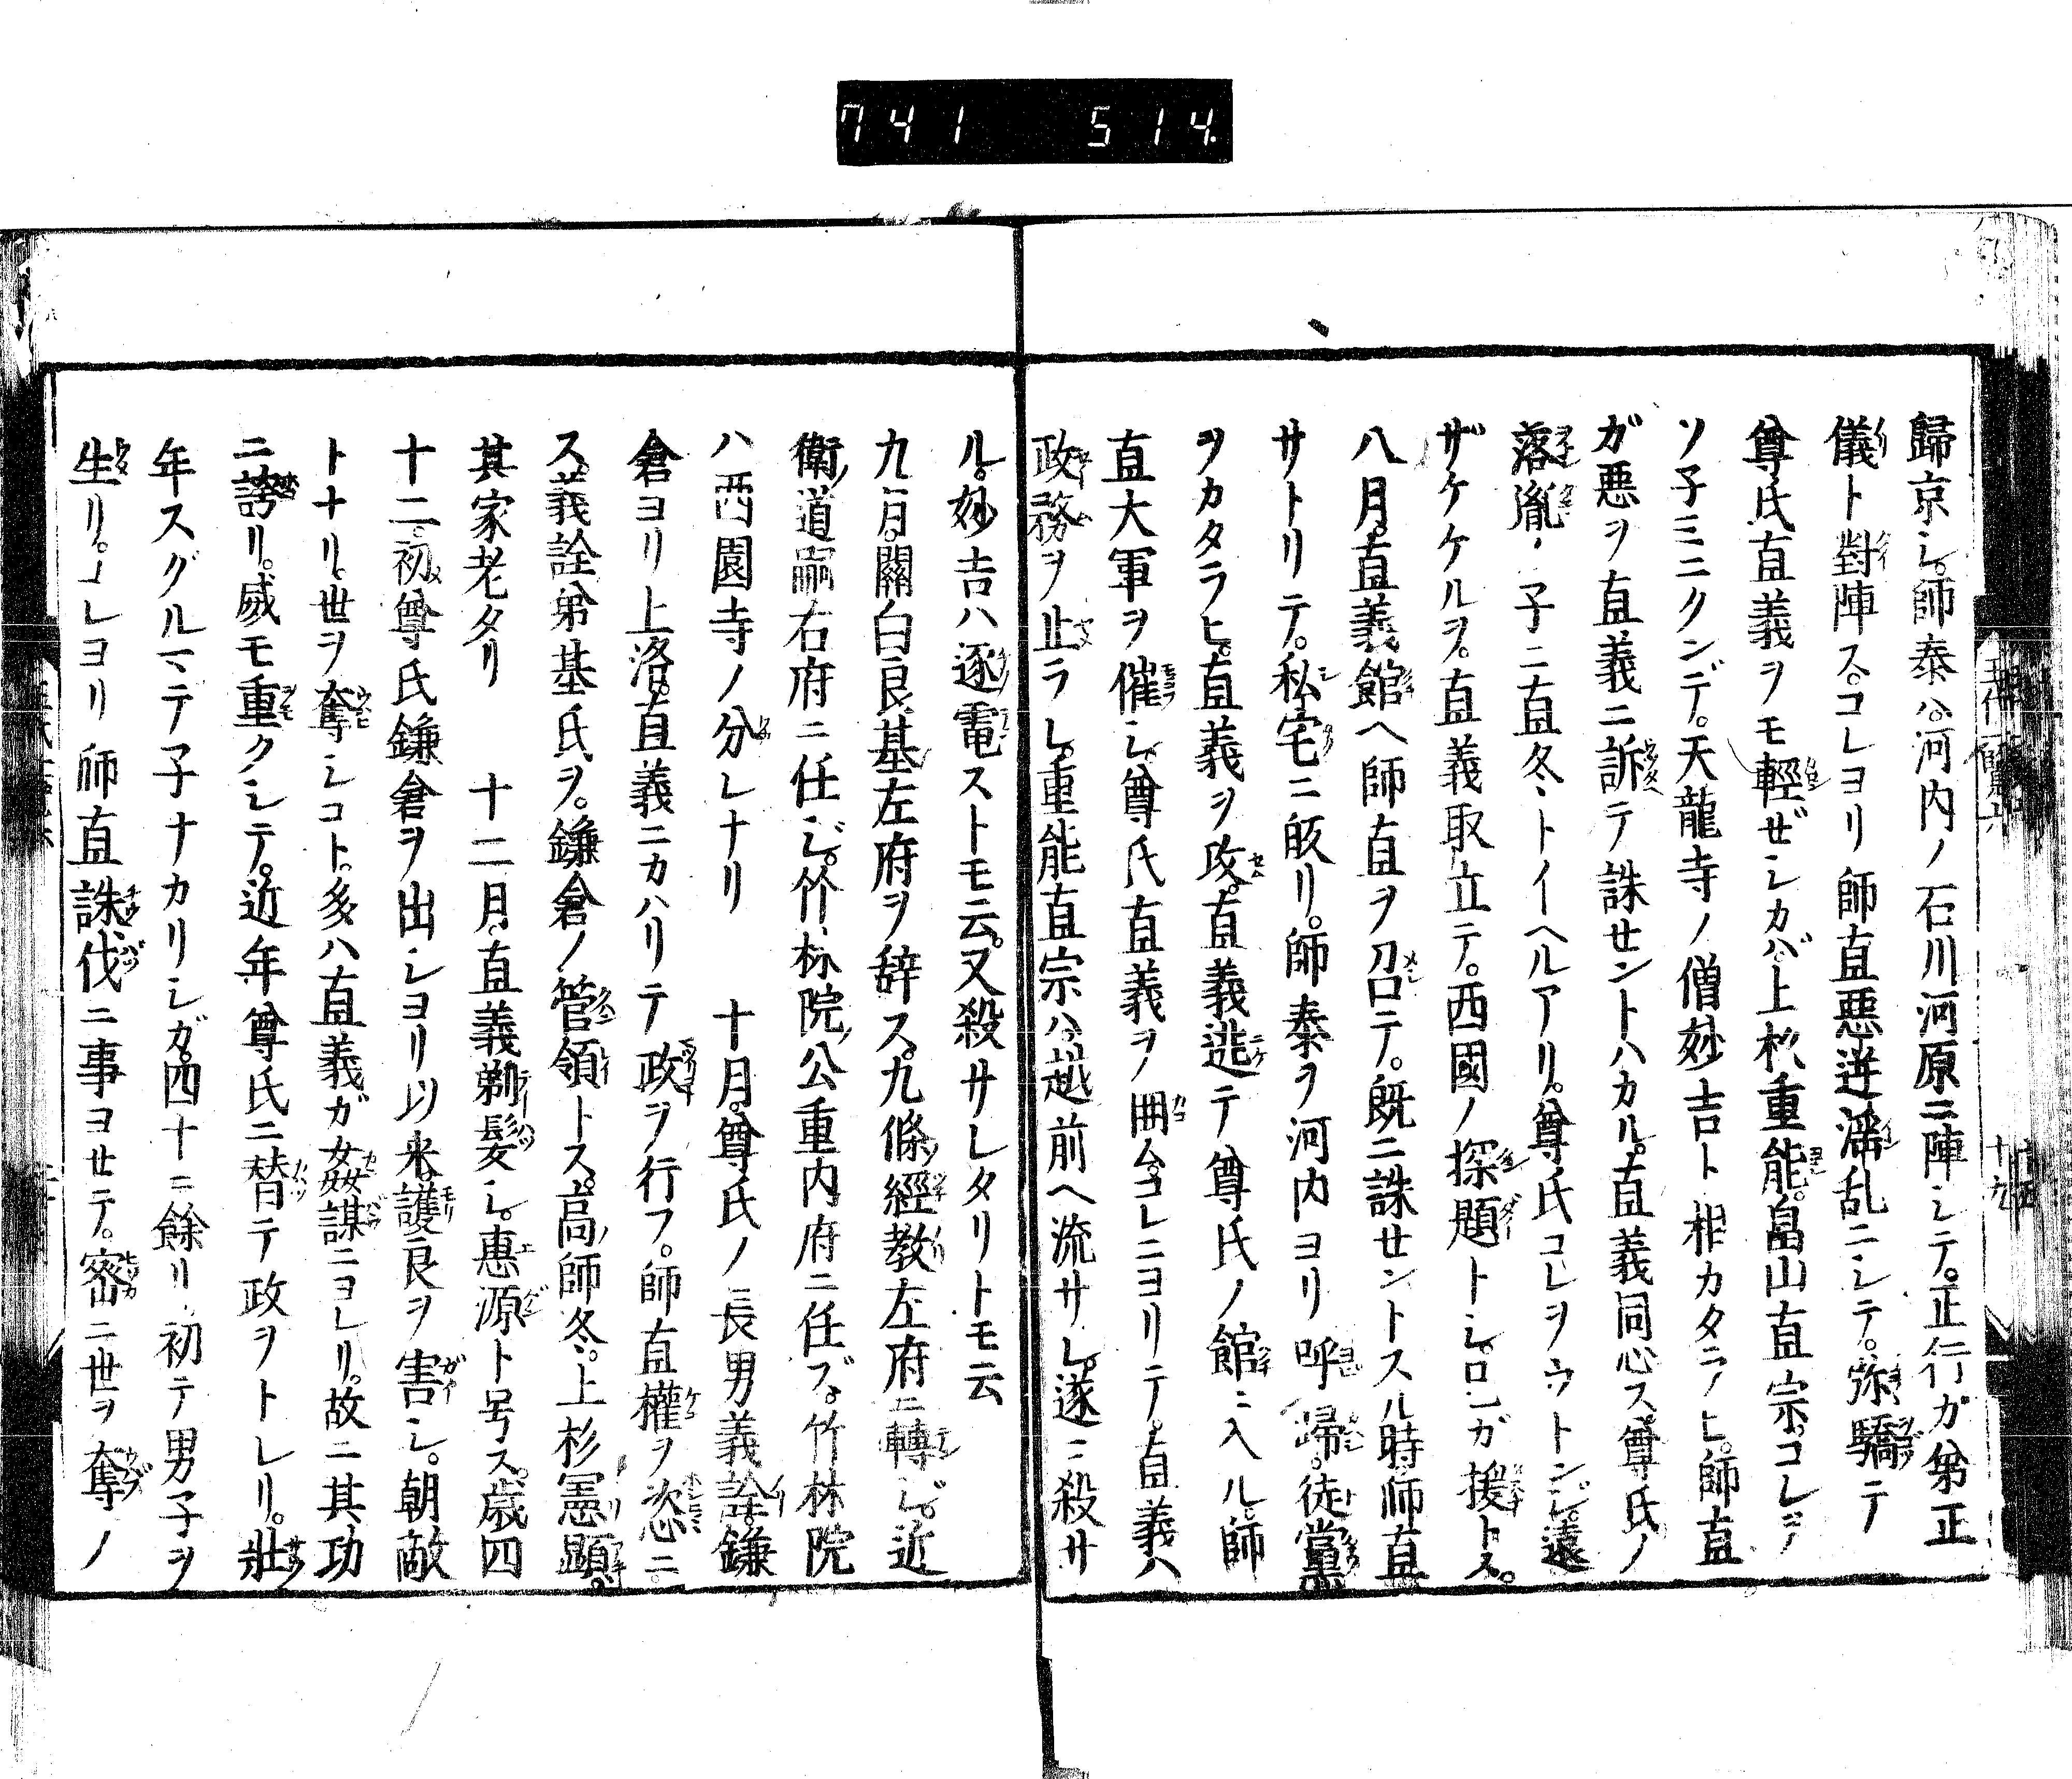 741 514
歸京シ。師泰ハ。河内ノ石川河原ニ陣シテ。正行ガ弟正
儀ト對陣ス。コレヨリ師直惡逆滛乱ニシテ。弥驕テ
尊氏直義ヲモ輕ゼシカバ。上杉重能。畠山直宗。コレヲ
ソ子ミニクンデ。天龍寺ノ僧妙吉ト相カタラヒ。師直
ガ悪ヲ直義ニ訴テ誅セントハカル。直義同心ス。尊氏ノ
落胤ノ子ニ直冬トイヘルアリ。尊氏コレヲウトンジ。遠
ザケケルヲ。直義取立テ。西國ノ探題トシ。己ガ援トス。
八月。直義館ヘ師直ヲ召テ。既ニ誅セントスル時。師直
サトリテ。私宅ニ皈リ。師泰ヲ河内ヨリ呼歸。徒黨
ヲカタラヒ。直義ヲ攻。直義逃テ尊氏ノ館ニ入ル。師
直大軍ヲ催シ。尊氏直義ヲ囲ム。コレニヨリテ。直義ハ
政務ヲ止ラレ。重能直宗ハ。越前ヘ流サレ。遂ニ殺サ
ル。妙吉ハ逐電ストモ云。又殺サレタリトモ云
九月。關白良基左府ヲ辞ス。九條經教左府ニ轉ジ。近
衛道嗣右府ニ任ジ。竹林院公重内府ニ任ズ。竹林院
ハ西園寺ノ分レナリ 十月。尊氏ノ長男義詮。鎌
倉ヨリ上洛。直義ニカハリテ政ヲ行フ。師直權ヲ恣ニ
ス。義詮弟基氏ヲ。鎌倉ノ管領トス。高師冬。上杉憲顯。
其家老タリ 十二月。直義剃髪シ。惠源ト号ス。歳四
十二。初尊氏鎌倉ヲ出シヨリ以来。護良ヲ害シ。朝敵
トナリ。世ヲ奪シコト。多ハ直義ガ姦謀ニヨレリ。故ニ其功
ニ誇リ。威モ重クシテ。近年尊氏ニ替テ政ヲトレリ。壯
年スグルマテ子ナカリシガ。四十ニ餘リ初テ男子ヲ
生リ。コレヨリ師直誅伐ニ事ヨセテ。密ニ世ヲ奪ノ